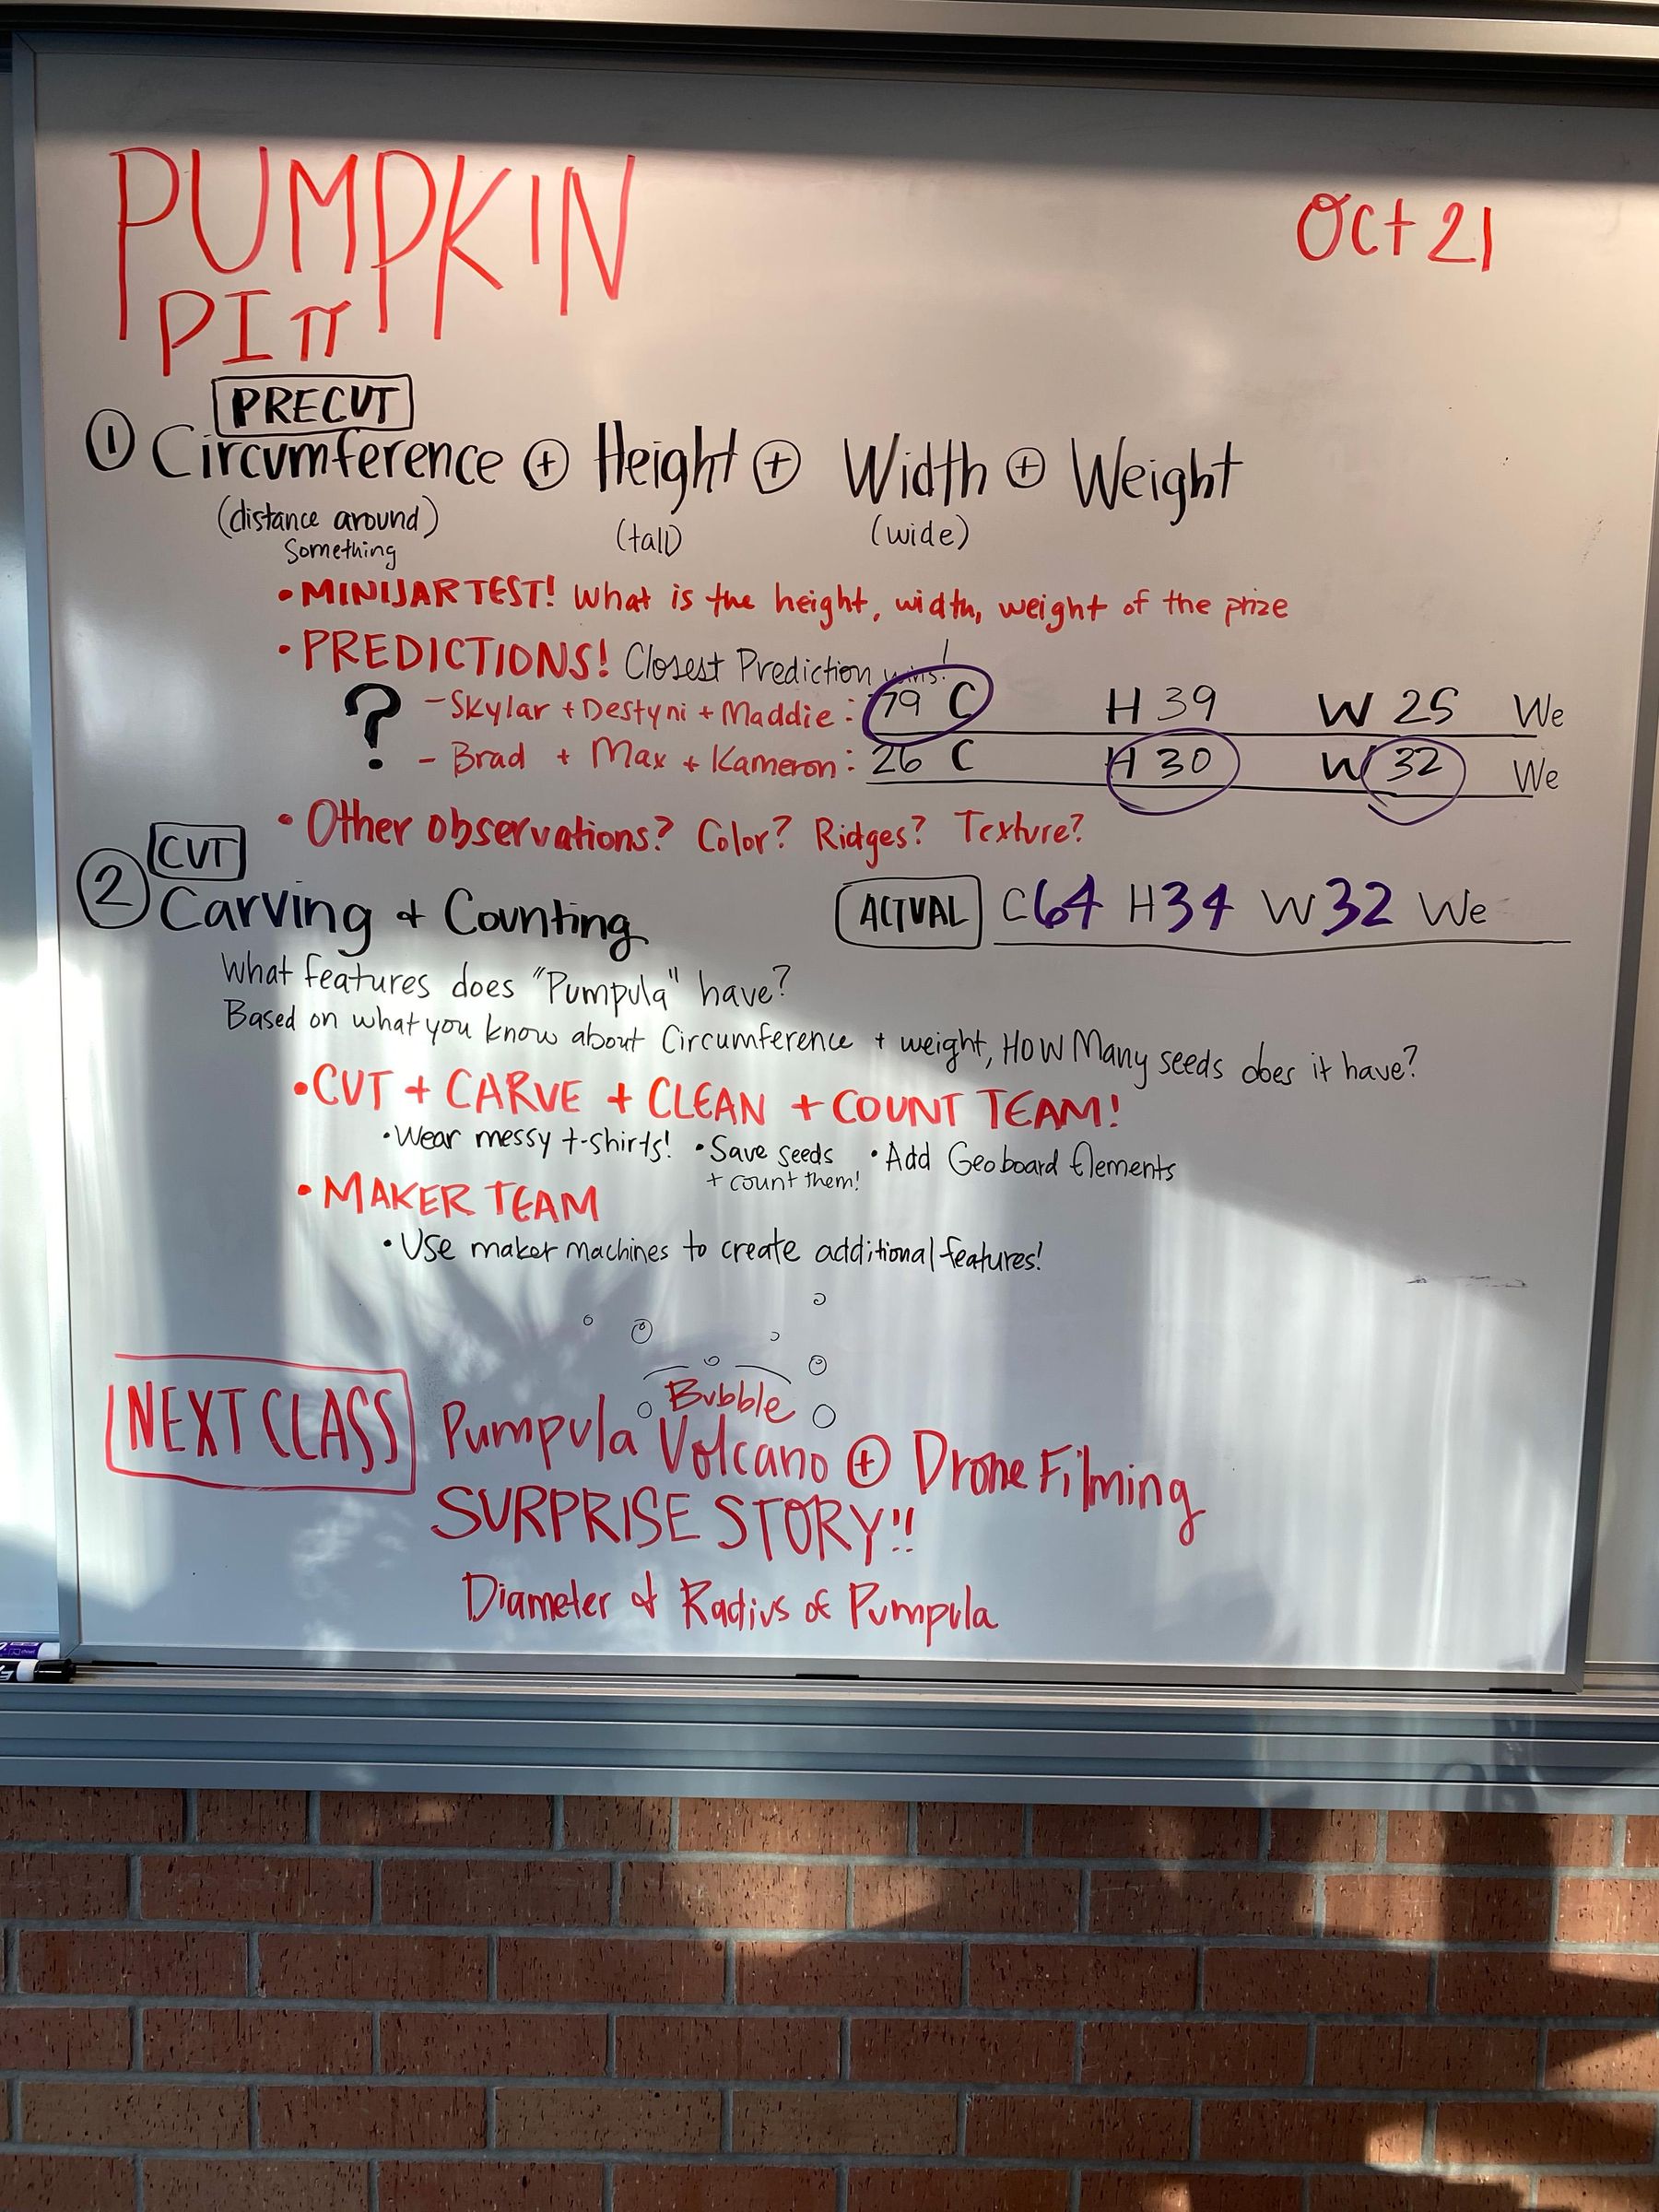 PUMPKIN
PI π
Oct 21
PRECUT
① Circumference ⊕ Height ⊕ Width ⊕ Weight
(distance around) (tall) (wide)
Something
• MINIJAR TEST! What is the height, width, weight of the prize
• PREDICTIONS! Closest Prediction wins!
? - Skylar + Destyni + Maddie: 79 C H 39 W 25 We
- Brad + Max + Kameron: 26 C H 30 W 32 We
• Other observations? Color? Ridges? Texture?
CUT
② Carving + Counting
ACTUAL C64 H34 W32 We
What features does "Pumpula" have?
Based on what you know about Circumference + weight, HOW Many seeds does it have?
• CUT + CARVE + CLEAN + COUNT TEAM!
• Wear messy t-shirts! • Save seeds • Add Geoboard Elements
+ count them!
• MAKER TEAM
• Use maker machines to create additional features!
NEXT CLASS
Bubble
Pumpula Volcano ⊕ Drone Filming
SURPRISE STORY!!
Diameter + Radius of Pumpula